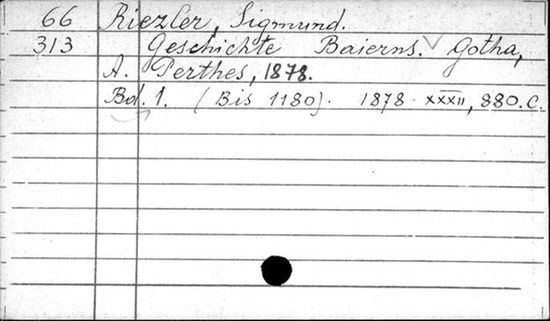 66 Riezler, Sigmund.
313 Geschichte Baierns. Gotha,
A. Perthes, 1878.
Bd. 1. (Bis 1180). 1878. XXXII, 880.C.